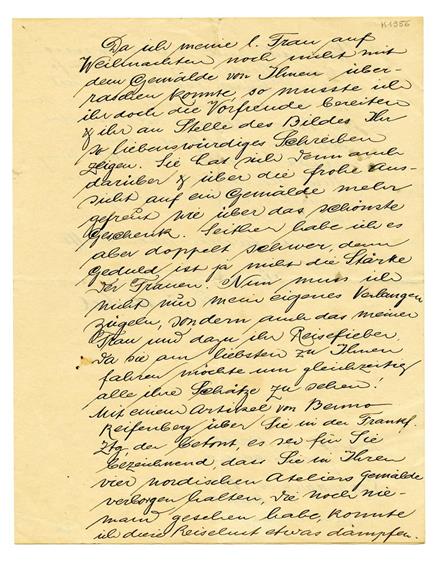 K1956
Da ich meine l. Frau auf
Weihnachten noch nicht mit
dem Gemälde von Ihnen über-
raschen konnte, so musste ich
ihr doch die Vorfreude bereiten
& ihr an Stelle des Bildes Ihr
so liebenswürdiges Schreiben
zeigen. Sie hat sich denn auch
darüber & über die frohe Aus-
sicht auf ein Gemälde mehr
gefreut wie über das schönste
Geschenk. Seither habe ich es
aber doppelt schwer, denn
Geduld ist ja nicht die Stärke
der Frauen! Nun muss ich
nicht nur mein eigenes Verlangen
zügeln, sondern auch das meiner
Frau und dazu ihr Reisefieber,
da sie am liebsten zu Ihnen
fahren möchte um gleichzeitig
alle ihre Schätze zu sehen!
Mit einem Artikel von Benno
Reifenberg über Sie in der Frankf.
Ztg, der betont es sei für Sie
bezeichnend, dass Sie in Ihren
vier nordischen Ateliers Gemälde
verborgen halten, die noch nie-
mand gesehen habe, konnte
ich diese Reiselust etwas dämpfen.